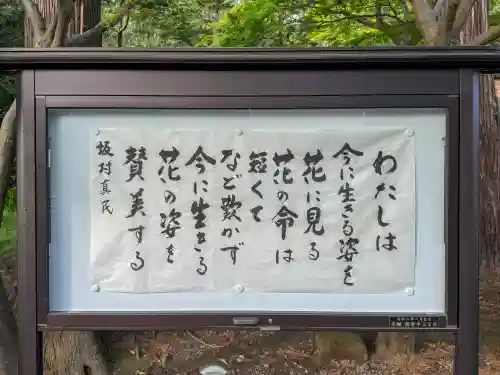 わたしは
今に生きる姿を
花に見る
花の命は
短くて
など歎かず
今に生きる
花の姿を
賛美する
坂村真民